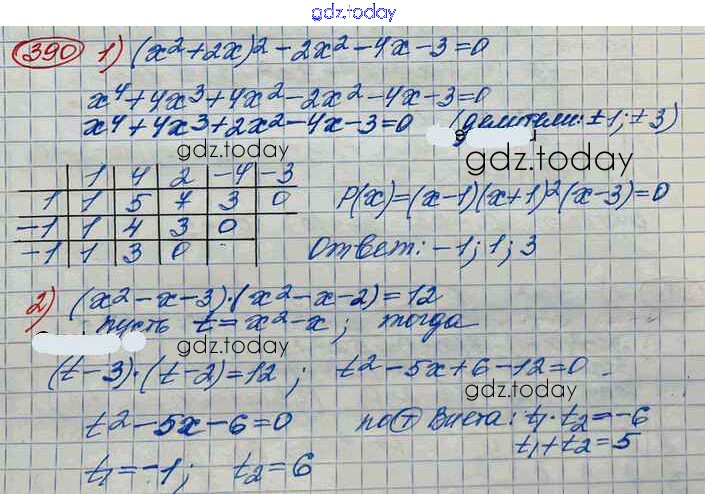 gdz.today
390 1) (x²+2x)²-2x²-4x-3=0
x⁴+4x³+4x²-2x²-4x-3=0
x⁴+4x³+2x²-4x-3=0 (делители: ±1; ±3)
gdz.today gdz.today
1 4 2 -4 -3
1 1 5 7 3 0 P(x)=(x-1)(x+1)²(x-3)=0
-1 1 4 3 0
-1 1 3 0 Ответ: -1; 1; 3
2) (x²-x-3)·(x²-x-2)=12
пусть t=x²-x; тогда
gdz.today
(t-3)·(t-2)=12; t²-5x+6-12=0
gdz.today
t²-5x-6=0 по т Виета: t₁·t₂=-6
t₁+t₂=5
t₁=-1; t₂=6